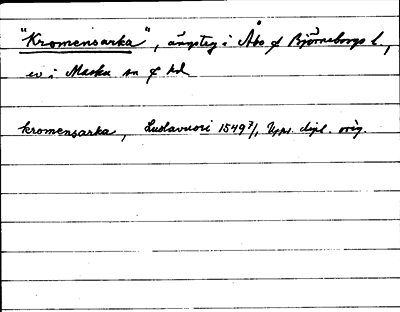 "Kromensarka", ängsteg i Åbo o Björneborgs l.,
ev i Masku sn o hd
kromensarka, Luolavuori 1549 7/1 Upps. dipl. orig.